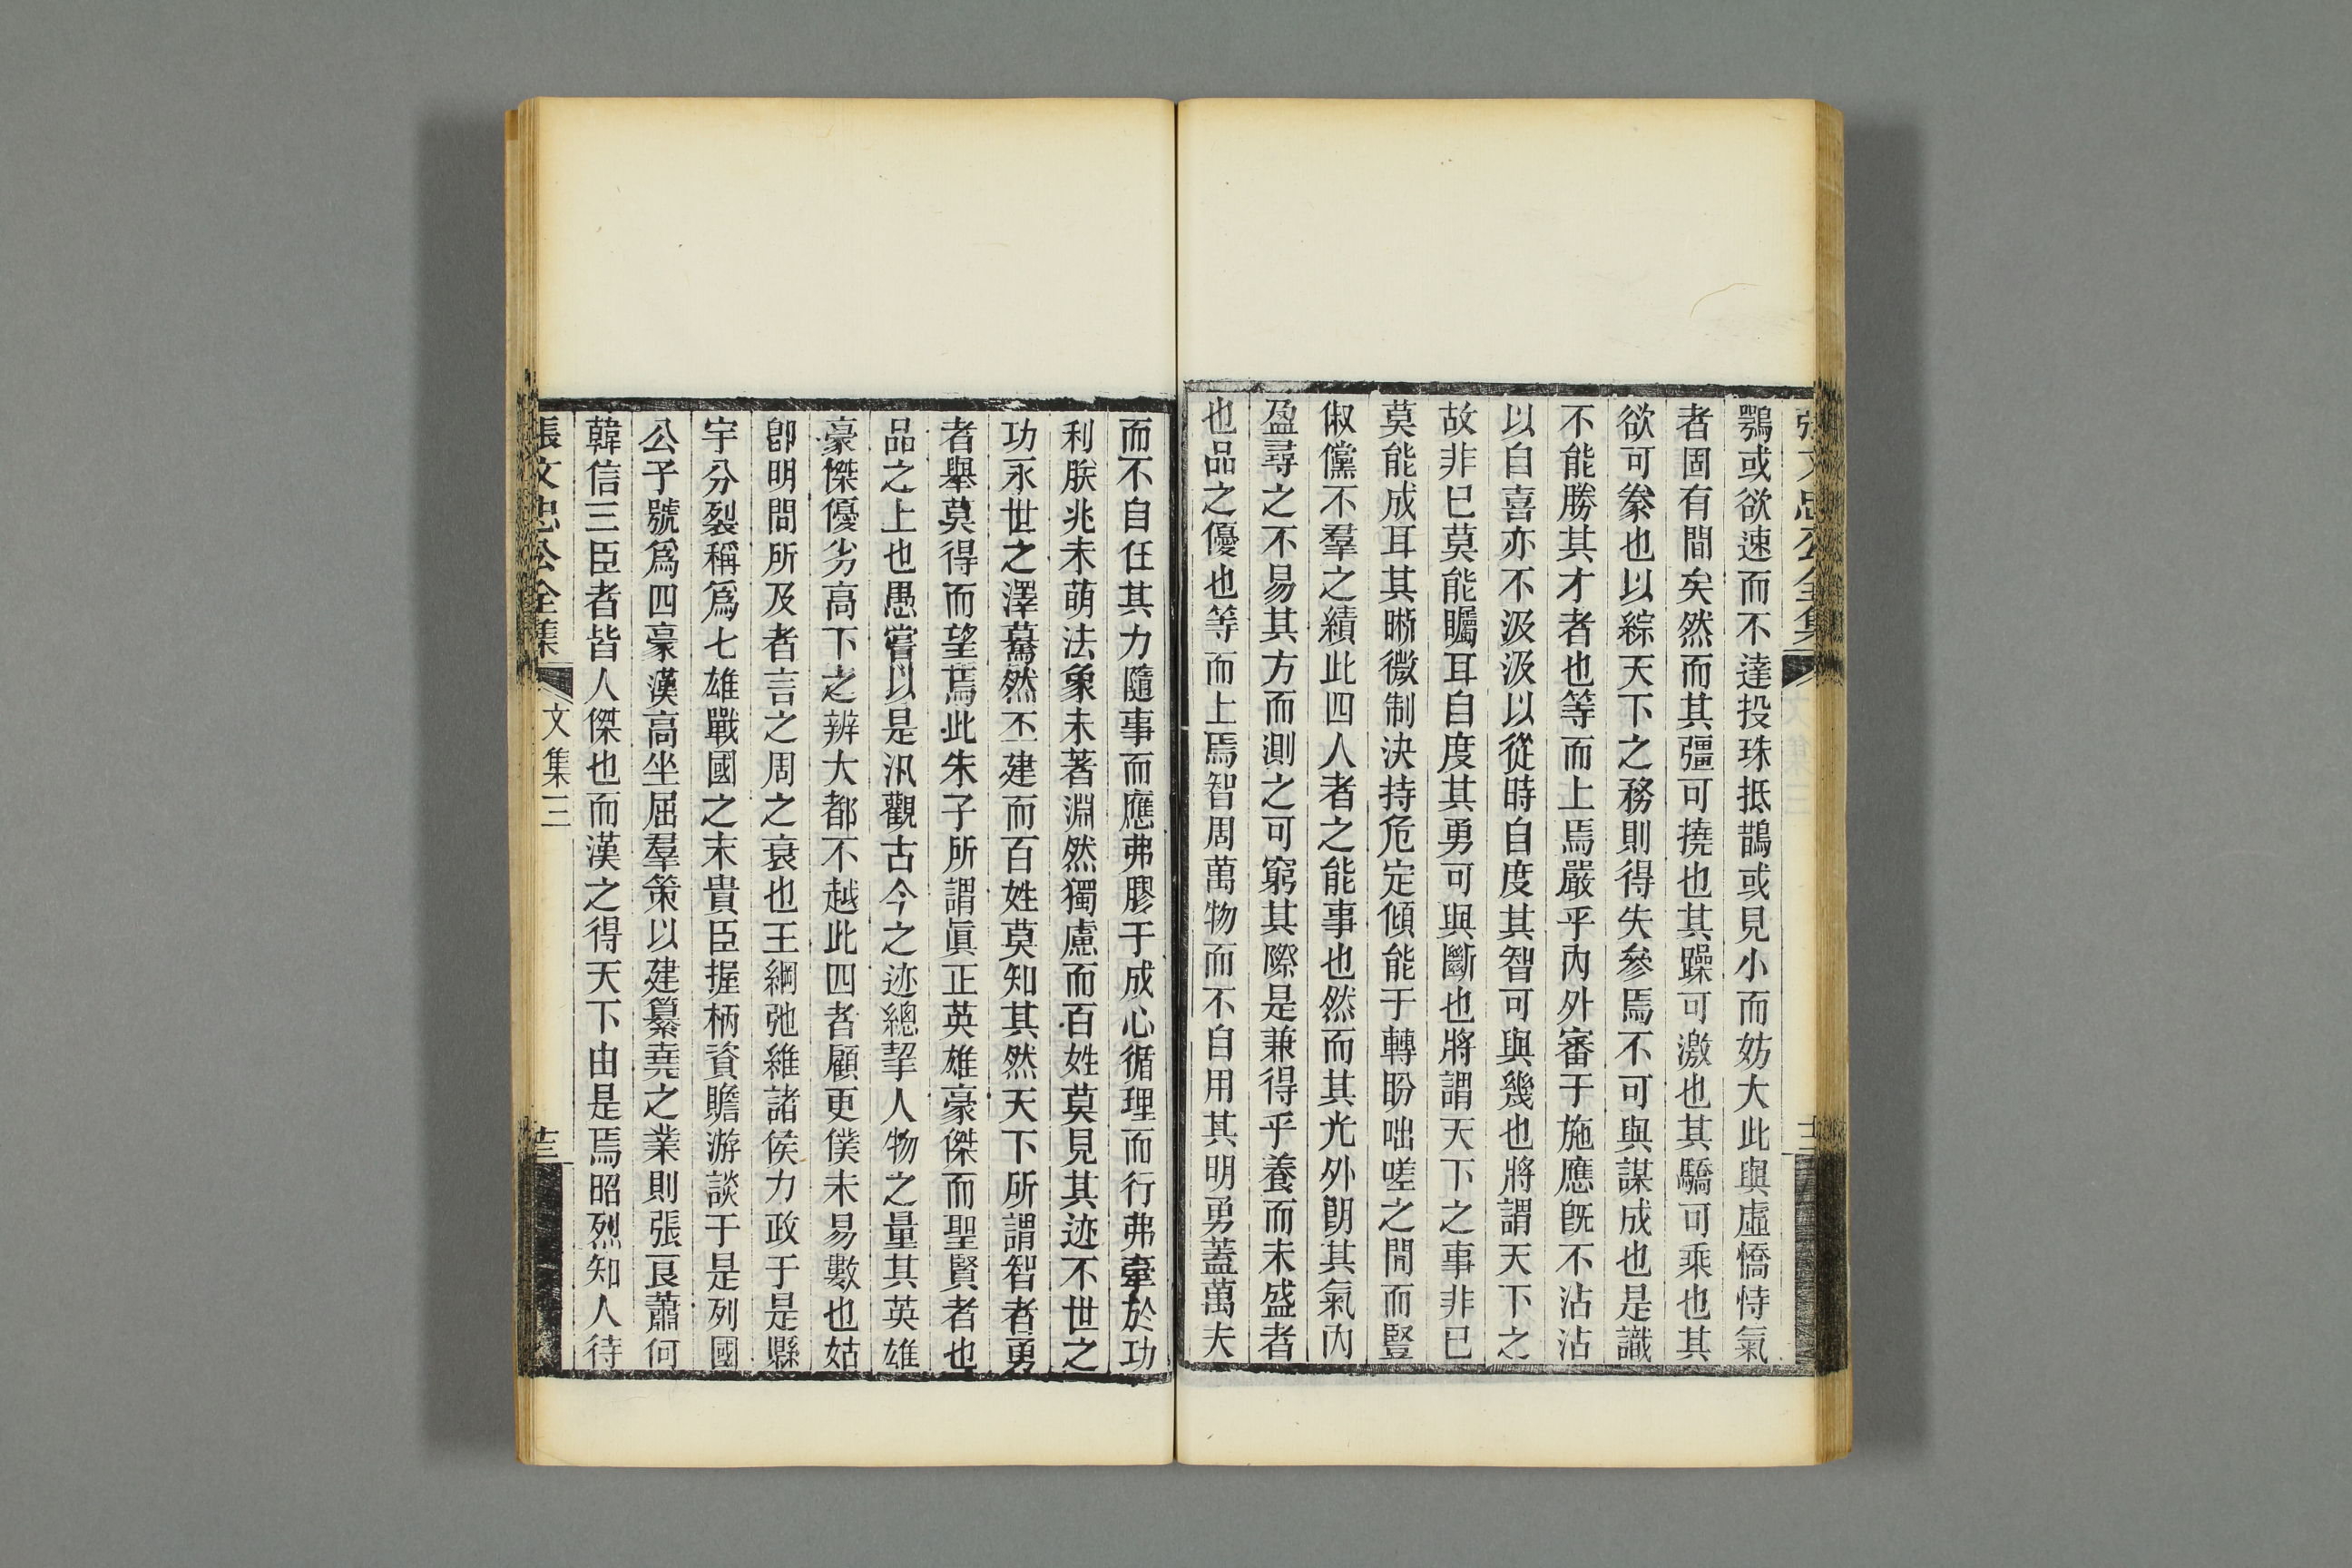 張文忠公全集
十二
鶚或欲速而不達投珠抵鵲或見小而妨大此與虛憍恃氣
者固有間矣然而其彊可撓也其躁可激也其驕可乘也其
欲可豢也以綜天下之務則得失參焉不可與謀成也是識
不能勝其才者也等而上焉嚴乎內外審于施應旣不沾沾
以自喜亦不汲汲以從時自度其智可與幾也將謂天下之
故非已莫能矚耳自度其勇可與斷也將謂天下之事非已
莫能成耳其晰微制決持危定傾能于轉盼咄嗟之閒而豎
俶儻不羣之績此四人者之能事也然而其光外朗其氣內
盈尋之不易其方而測之可窮其際是兼得乎養而未盛者
也品之優也等而上焉智周萬物而不自用其明勇蓋萬夫
而不自任其力隨事而應弗膠于成心循理而行弗牽於功
利朕兆未萌法象未著淵然獨慮而百姓莫見其迹不世之
功永世之澤驀然丕建而百姓莫知其然天下所謂智者勇
者舉莫得而望焉此朱子所謂眞正英雄豪傑而聖賢者也
品之上也愚嘗以是汎觀古今之迹總挈人物之量其英雄
豪傑優劣高下之辨大都不越此四者顧更僕未易數也姑
卽明問所及者言之周之衰也王綱弛維諸侯力政于是縣
宇分裂稱爲七雄戰國之末貴臣握柄資贍游談于是列國
公子號爲四豪漢高坐屈羣策以建纂堯之業則張良蕭何
韓信三臣者皆人傑也而漢之得天下由是焉昭烈知人待
張文忠公全集
文集三